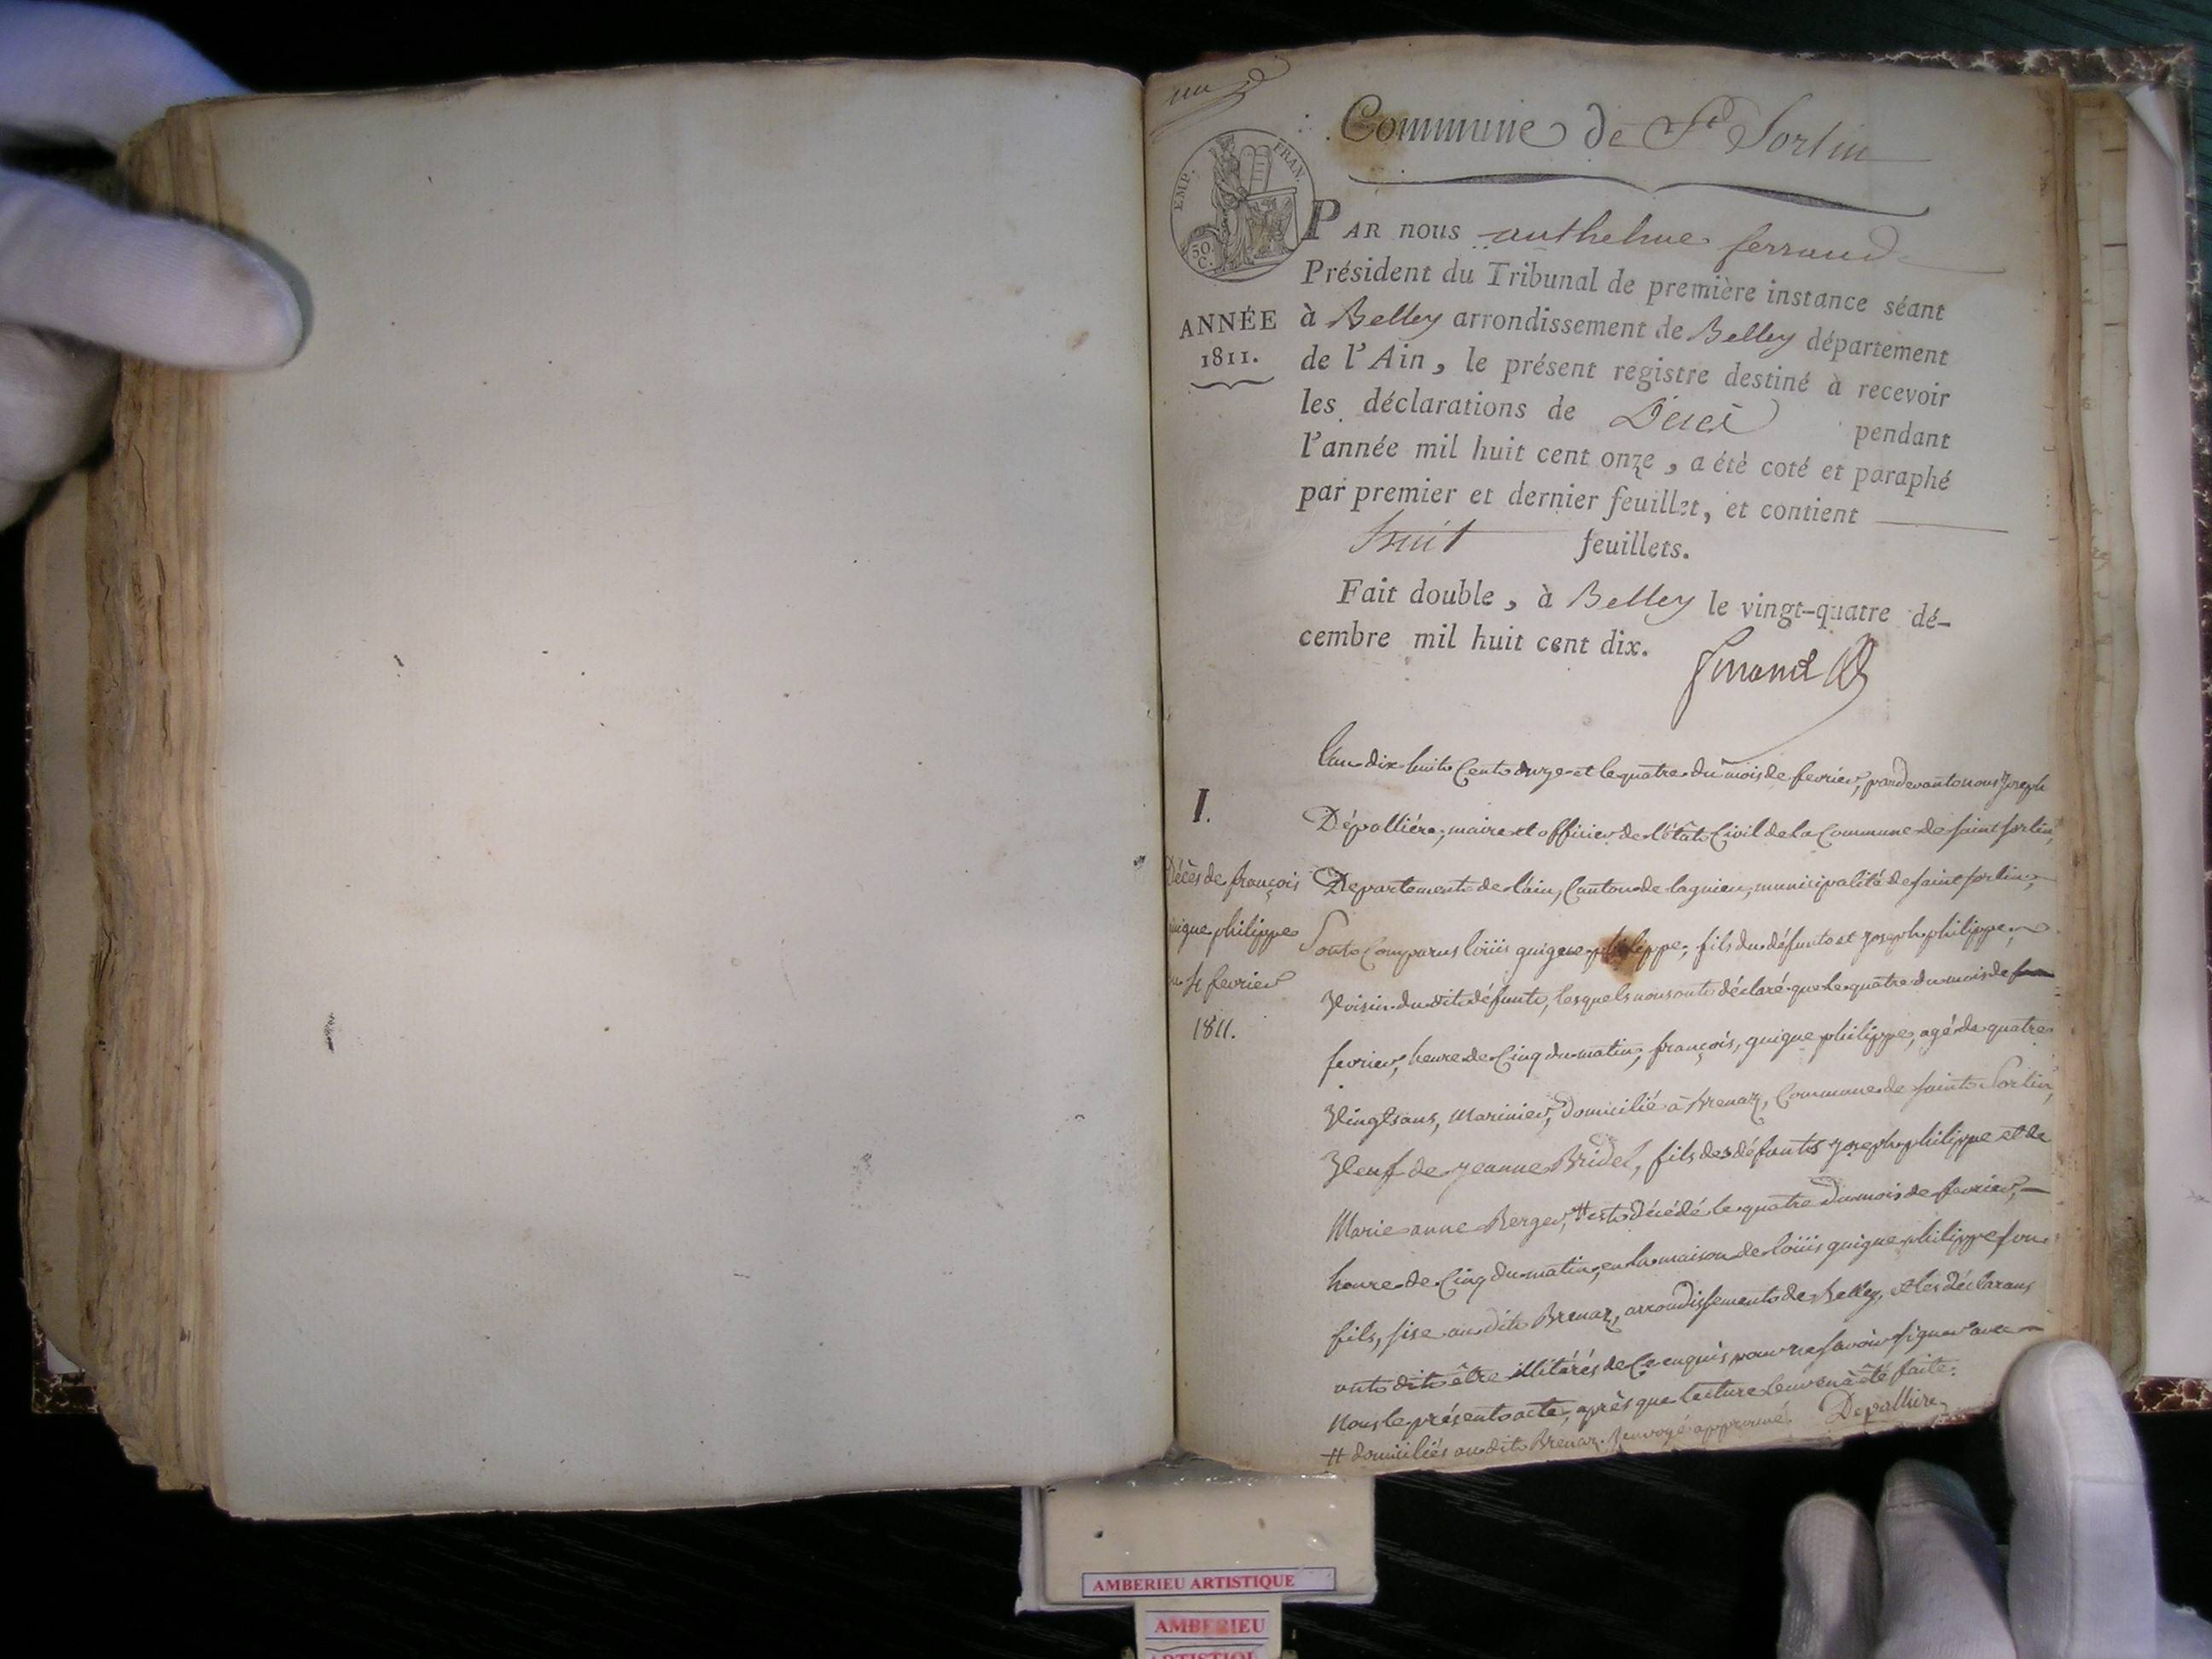 un
Commune de St Sortin
EMP. FRAN.
50 C.
PAR nous anthelme ferrand
Président du Tribunal de première instance séant
ANNÉE 1811.
à Belley arrondissement de Belley département
de l'Ain, le présent registre destiné à recevoir
les déclarations de Décès pendant
l'année mil huit cent onze, a été coté et paraphé
par premier et dernier feuillet, et contient
huit feuillets.
Fait double, à Belley le vingt-quatre dé-
cembre mil huit cent dix.
ferrand
I.
Décès de françois
guigue philippe
4 fevrier
1811.
L'an dix huit Cent onze et le quatre du mois de fevrier, pardevant nous Joseph
Dépallière, maire et officier de l'état Civil de la Commune de saint sorlin,
Departement de l'ain, Canton de lagnieu, municipalité de saint sorlin,
Sont Comparus loüis guigue philippe, fils du défunt et joseph philippe,
Voisin du dit défunt, lesquels nous ont déclaré que le quatre du mois de
fevrier, heure de Cinq du matin, françois, guigue philippe, agé de quatre
Vingts ans, Marinier, domicilié à Brenaz, Commune de saint Sorlin,
Veuf de jeanne Bridel, fils des défunts joseph philippe et de
Marie anne Berger, # est décédé le quatre du mois de fevrier,
heure de Cinq du matin, en la maison de loüis guigue philippe son
fils, sise au dit Brenaz, arrondissement de Belley, et les déclarans
ont dit être illitérés de Ce enquis pour ne savoir signer avec
Nous le présent acte, après que lecture leur en à été faite.
# domiciliés au dit Brenaz. Renvoyé approuvé. Depallière
AMBERIEU ARTISTIQUE
AMBERIEU
ARTISTIQUE